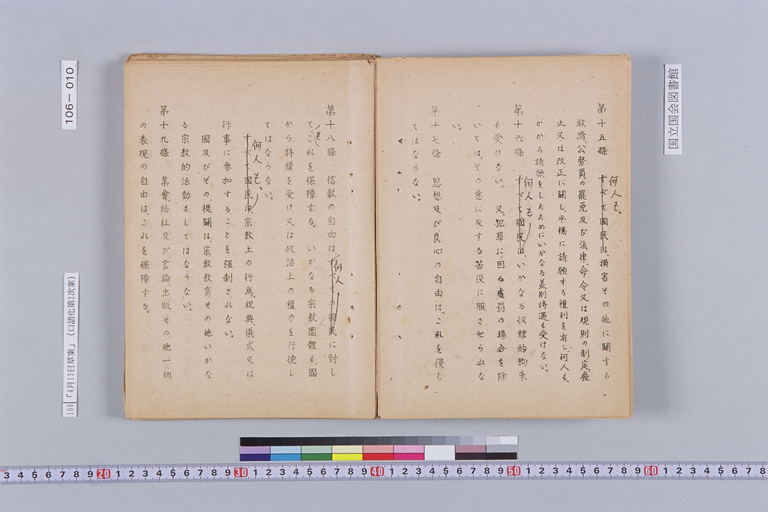 国立国会図書館
第十五條　すべて国民は、損害その他に関する
何人も、
救済、公務員の罷免及び法律、命令又は規則の制定、廃
止又は改正に関し、平穏に請願する権利を有し、何人も、
かかる請願をしたためにいかなる差別待遇も受けない。
第十六條　すべて國民は、いかなる奴隷的拘束
何人も、
も受けない。又、犯罪に因る處罰の場合を除
いては、その意に反する苦役に服させられな
い。
第十七條　思想及び良心の自由は、これを侵し
てはならない。
第十八條　信教の自由は、すべての國民に對し
何人
てこれを保障する。いかなる宗教團體も、國
も
から特權を受け、又は政治上の權力を行使し
てはならない。
すべて國民は、宗教上の行爲、祝典、儀式又は
何人も、
行事に參加することを強制されない。
國及びその機關は、宗教教育その他いかな
る宗教的活動もしてはならない。
第十九條　集會、結社及び言論、出版その他一切
の表現の自由は、これを保障する。
106－010
106「4月13日草案」(口語化第2次案)
3 4 5 6 7 8 9 20 1 2 3 4 5 6 7 8 9 30 1 2 3 4 5 6 7 8 9 40 1 2 3 4 5 6 7 8 9 50 1 2 3 4 5 6 7 8 9 60 1 2 3 4 5 6 7 8